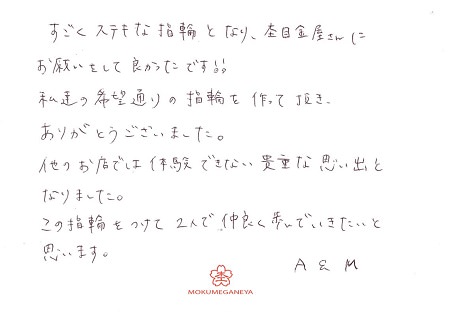 すごくステキな指輪となり、杢目金屋さんに
お願いをして良かったです!!
私達の希望通りの指輪を作って頂き、
ありがとうございました。
他のお店では体験できない貴重な思い出と
なりました。
この指輪をつけて2人で仲良く歩んでいきたいと
思います。
A & M
杢
MOKUMEGANEYA